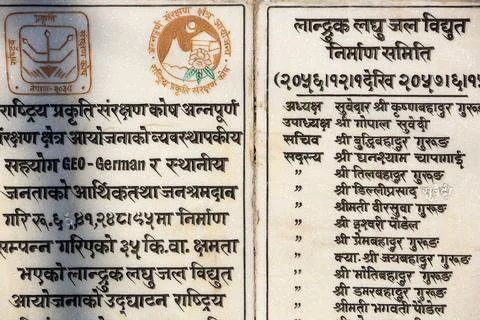 प्रकृति
नेपाल-२०३९
अन्नपूर्ण संरक्षण क्षेत्र आयोजना
राष्ट्रिय प्रकृति संरक्षण कोष
राष्ट्रिय प्रकृति संरक्षण कोष अन्नपूर्ण
संरक्षण क्षेत्र आयोजनाको व्यवस्थापकीय
सहयोग GEO-German र स्थानीय
जनताको आर्थिक तथा जनश्रमदान
गरि रू.६,४१,२४८।९५मा निर्माण
सम्पन्न गरिएको ३५ कि.वा. क्षमता
भएको लान्द्रुक लघु जल विद्युत
आयोजनाको उद्घाटन राष्ट्रिय
लान्द्रूक लघु जल विद्युत
निर्माण समिति
(२०५६।१२।१देखि २०५७।६।१५
अध्यक्ष सुवेदार श्री कृष्णबहादुर गुरूङ
उपाध्यक्ष श्री गोपाल सुवेदी
सचिव श्री बुद्धिबहादुर गुरूङ
सदस्य श्री घनश्याम चापागाई
" श्री तिलबहादुर गुरूङ
" श्री डिल्लीप्रसाद
" श्रीमती वीरसुवा गुरूङ
" श्री इश्वरी पौडेल
" श्री प्रेमबहादुर गुरूङ
" क्या. श्री जयबहादुर गुरूङ
" श्री मोतिबहादुर गुरूङ
" श्री डमरबहादुर गुरूङ
" श्रीमती भगवती पौडेल